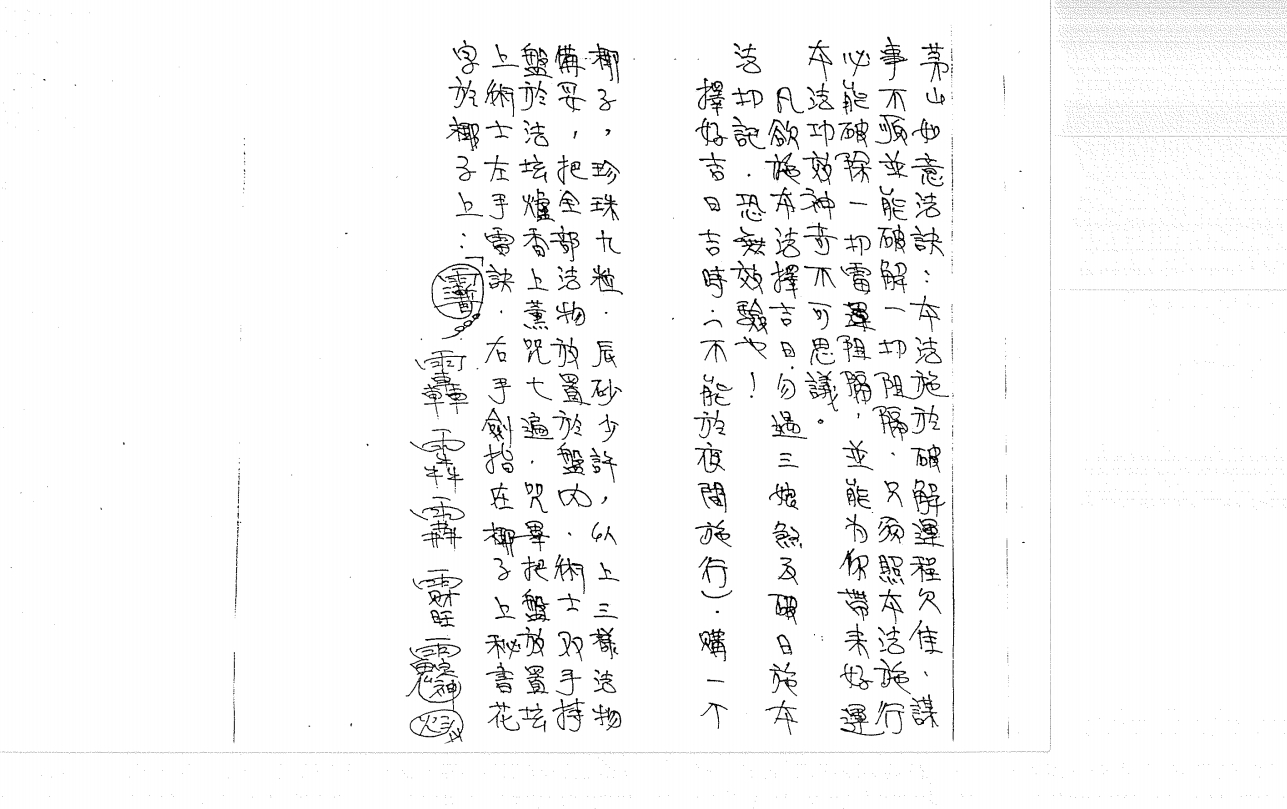 茅山如意法訣：本法施於破解運程欠佳、謀
事不順並能破解一切阻隔．只須照本法施行
必能破除一切雷運阻隔，並能为你帶来好運
本法功效神奇不可思議。
凡欲施本法擇吉日．勿過三娘煞及破日施本
法切記．恐無效驗也！
擇好吉日吉時．(不能於夜間施行)．購一个
椰子，珍珠九粒．辰砂少許，以上三樣法物
備妥，把全部法物放置於盤内．術士双手持
盤於法坛爐香上薰咒七遍．咒畢把盤放置坛
上術士左手雷訣．右手劍指在椰子上秘書花
字於椰子上：「